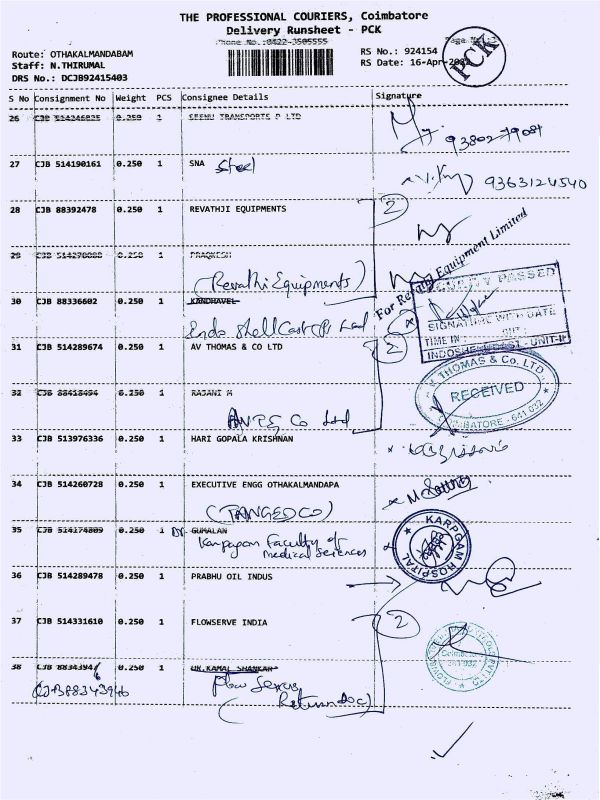 THE PROFESSIONAL COURIERS, Coimbatore
Delivery Runsheet - PCK
Phone No.:0422-3505555
Route: OTHAKALMANDABAM
Staff: N.THIRUMAL
DRS No.: DCJB92415403
RS No.: 924154
RS Date: 16-Apr-
PCK
S No Consignment No Weight PCS Consignee Details Signature
26 CJB 514246825 0.250 1 SEENU TRANSPORTS P LTD
9380279081
27 CJB 514190161 0.250 1 SNA Steel
9363124540
28 CJB 88392478 0.250 1 REVATHJI EQUIPMENTS 2
29 CJB 514270088 0.250 1 PRAGKESH
(Revathi Equipments)
For Revathi Equipment Limited
30 CJB 88336602 0.250 1 KANDHAVEL
SECURITY PASSED
SIGNATURE WITH DATE
TIME IN: OUT:
INDOSHELL UNIT-II
31 CJB 514289674 0.250 1 AV THOMAS & CO LTD 2
THOMAS & Co. LTD
RECEIVED
COIMBATORE - 641 032
32 CJB 88418494 0.250 1 RAJANI M
33 CJB 513976336 0.250 1 HARI GOPALA KRISHNAN
34 CJB 514260728 0.250 1 EXECUTIVE ENGG OTHAKALMANDAPA
(TANGEDCO)
35 CJB 514174809 0.250 1 Dr. GUMALAN
Karpagam Faculty of
Medical Sciences
KARPGAM HOSPITAL
36 CJB 514289478 0.250 1 PRABHU OIL INDUS
37 CJB 514331610 0.250 1 FLOWSERVE INDIA 2
Coimbatore
641 032
38 CJB 88343946 0.250 1 DR.KAMAL SHANKAR
CJB88343946
Flow Serve
(Return doc)